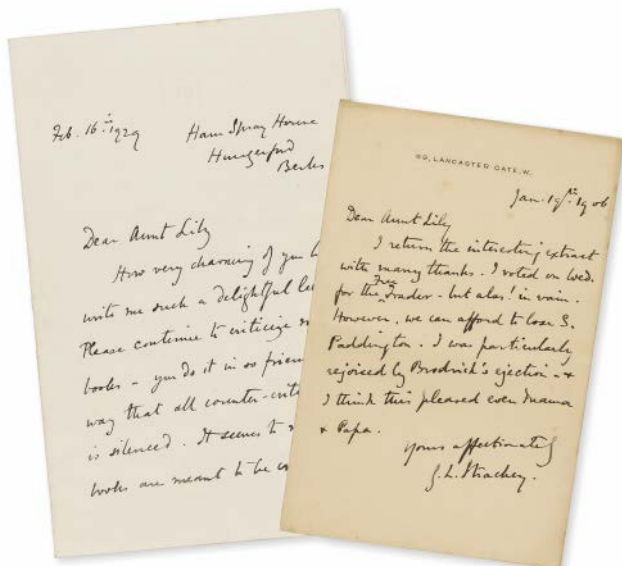 Feb. 16th 1929
Ham Spray House
Hungerford
Berks
Dear Aunt Lily
How very charming of you
write me such a delightful
Please continue to criticize
books – you do it in so
way that all
is silenced. It seems to
books are meant to be
69, LANCASTER GATE, W.
Jan. 19th 1906
Dear Aunt Lily
I return the interesting extract
with many thanks. I voted on Wed.
for the Free Trader – but alas! in vain.
However, we can afford to lose S.
Paddington. I was particularly
rejoiced by Brodrick's ejection – &
I think this pleased even Mama
& Papa.
Yours affectionately
G. L. Strachey.